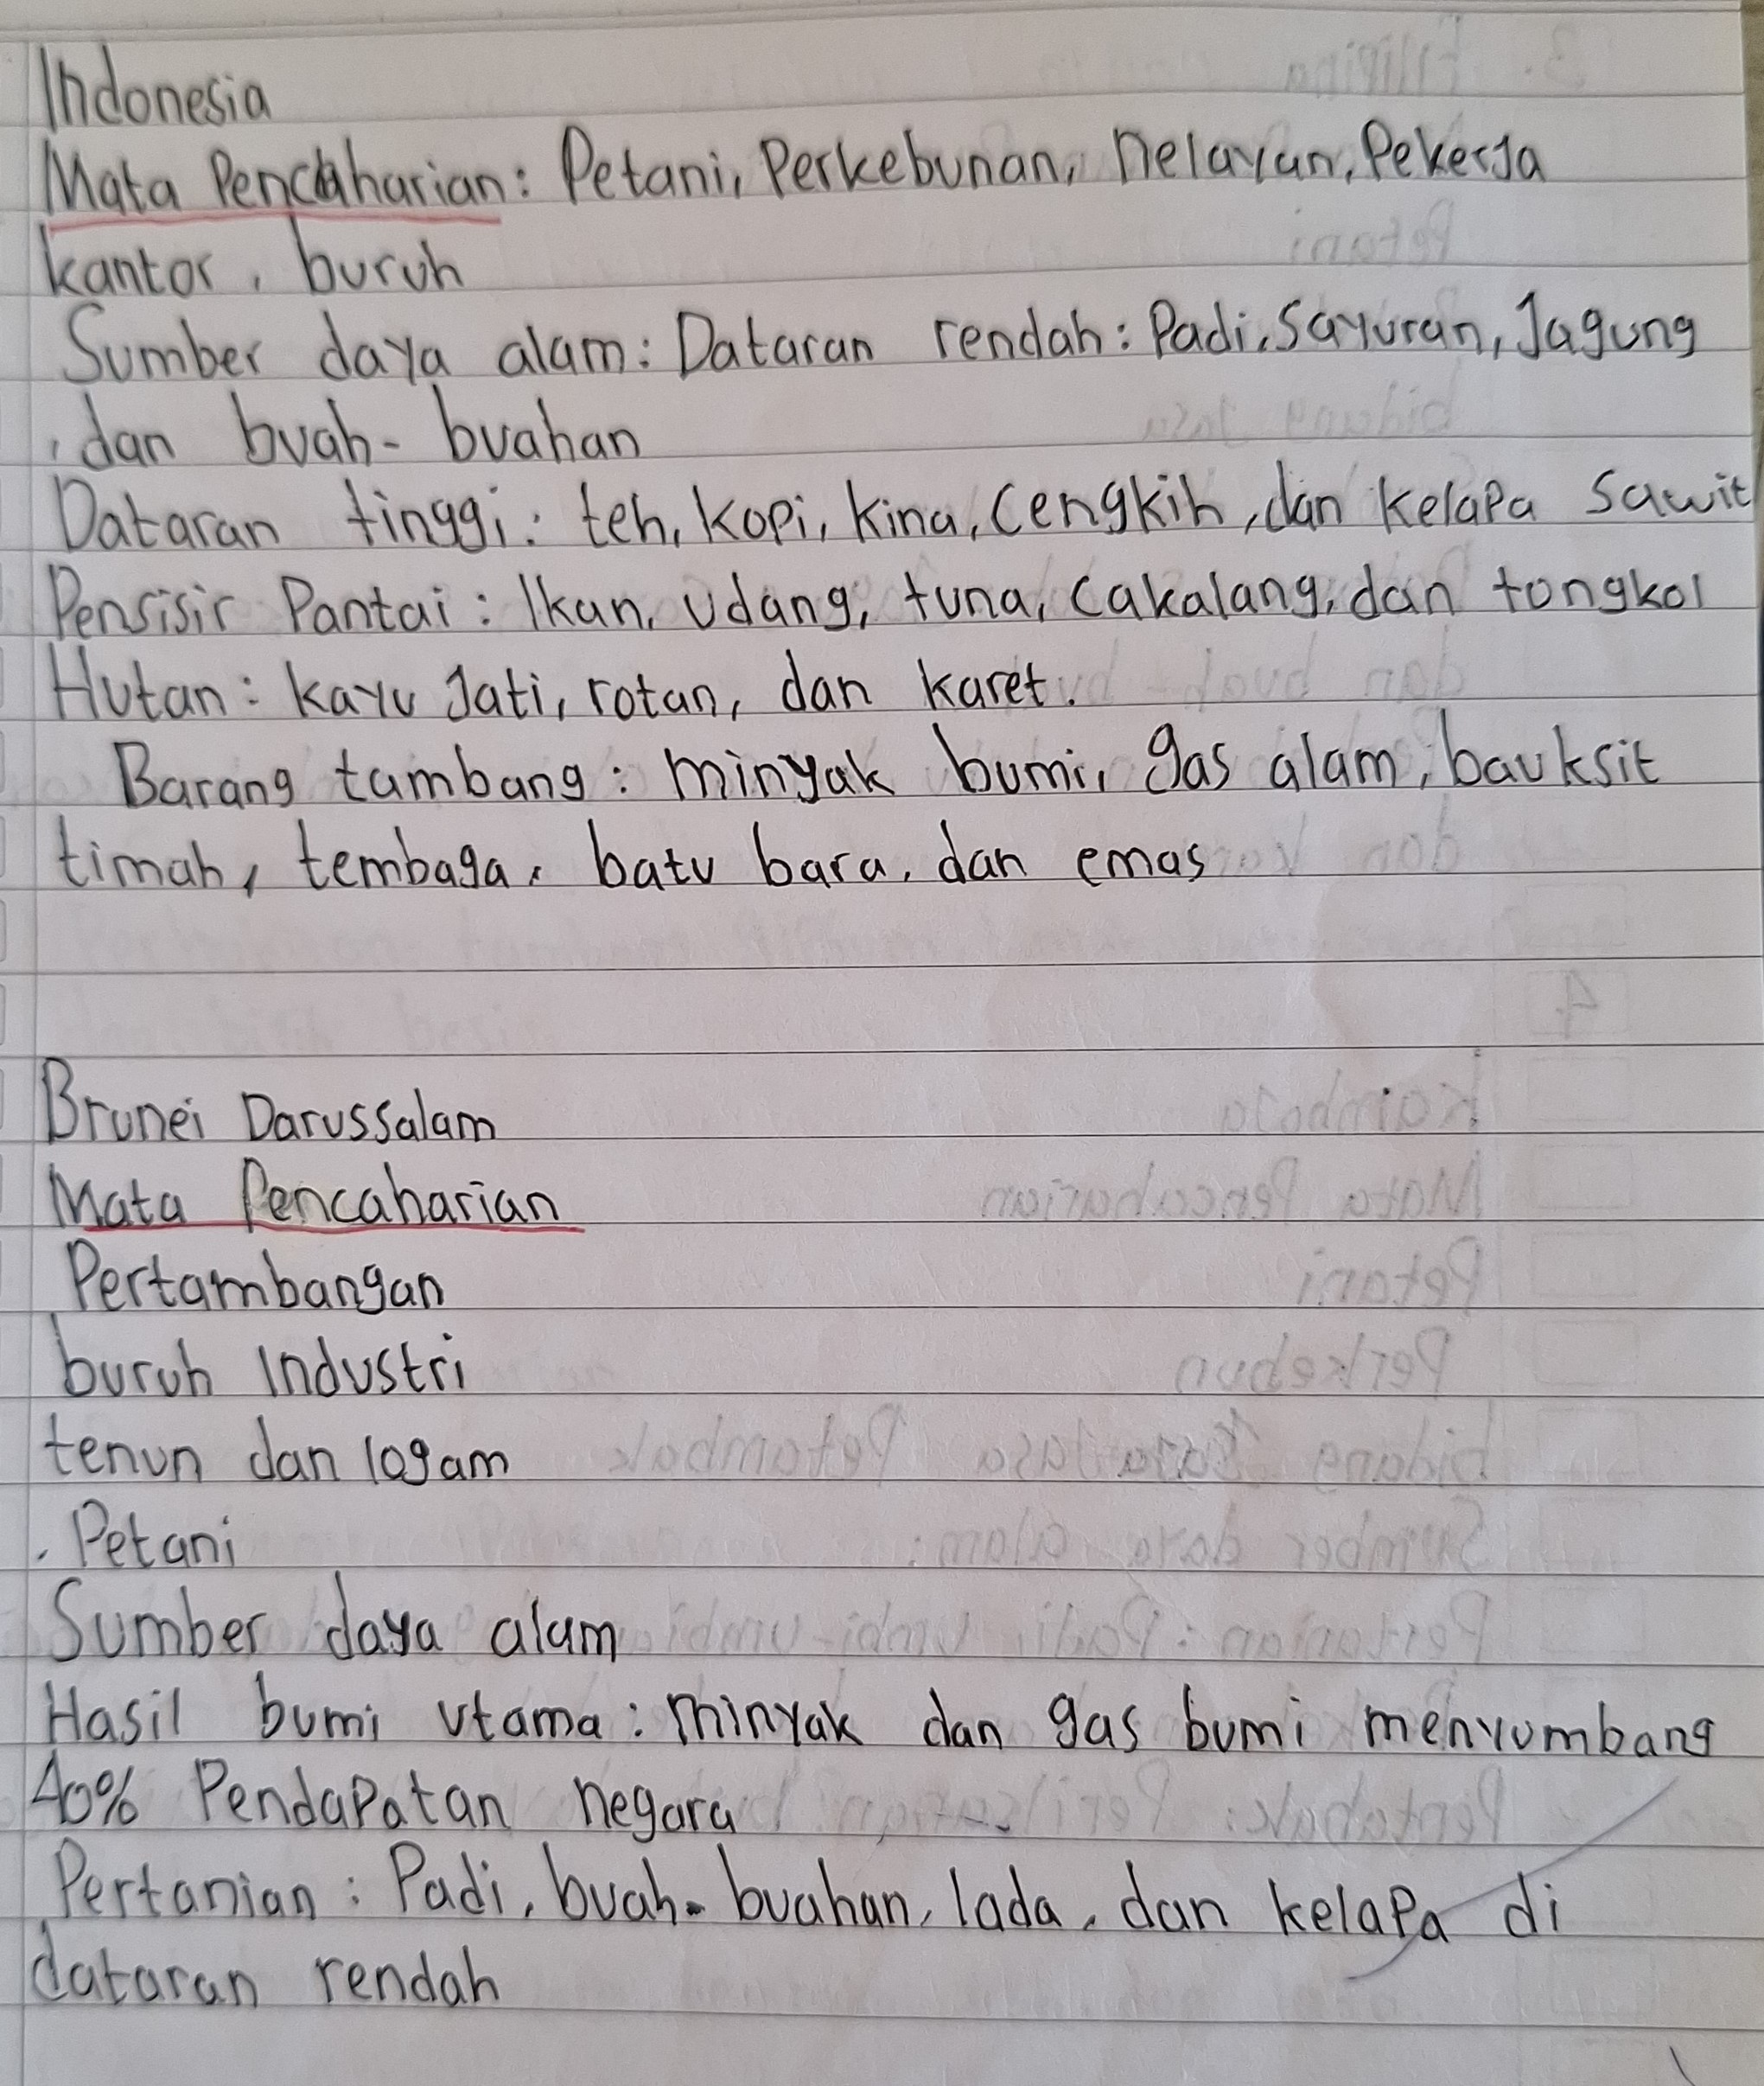 Indonesia
Mata Pencaharian: Petani, Perkebunan, nelayan, Pekerja
kantor, buruh
Sumber daya alam: Dataran rendah: Padi, Sayuran, Jagung
, dan buah-buahan
Dataran tinggi: teh, kopi, kina, cengkih, dan kelapa sawit
Pensisir Pantai: Ikan, udang, tuna, cakalang, dan tongkol
Hutan: kayu Jati, rotan, dan karet.
Barang tambang: minyak bumi, gas alam, bauksit
timah, tembaga, batu bara, dan emas
Brunei Darussalam
Mata Pencaharian
Pertambangan
buruh Industri
tenun dan logam
. Petani
Sumber daya alam
Hasil bumi utama: minyak dan gas bumi menyumbang
40% Pendapatan negara
Pertanian: Padi, buah-buahan, lada, dan kelapa di
dataran rendah